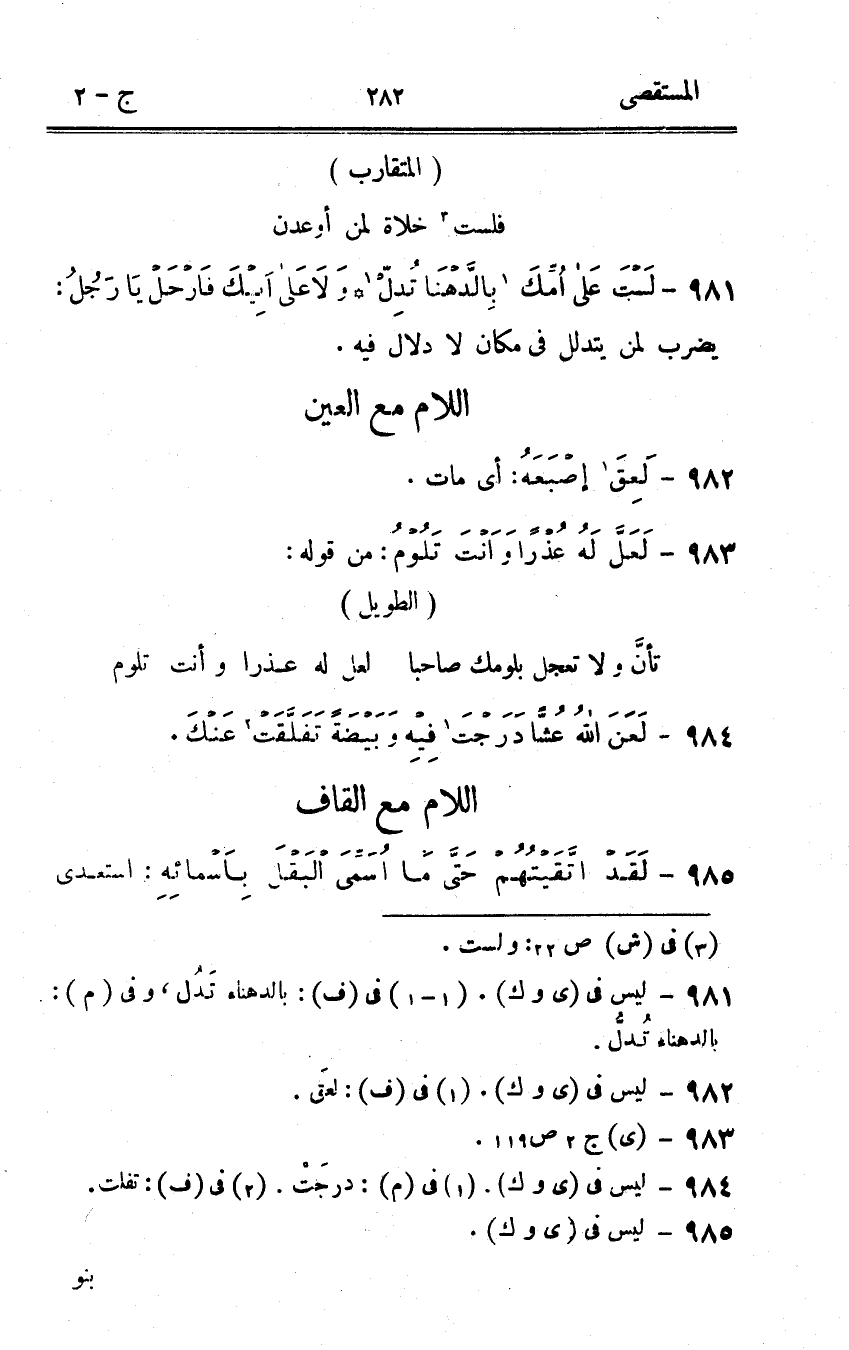 المستقصى ٢٨٢ ج - ٢
( المتقارب )
فلست٣ خلاة لمن أوعدن
٩٨١ - لَسْتَ عَلَى أُمِّكَ ١بِالدَّهْنَا تُدِلّ١* وَلَا عَلَى أَبِيْكَ فَارْحَلْ يَا رَجُلُ:
يضرب لمن يتدلل فى مكان لا دلال فيه .
اللام مع العين
٩٨٢ - لَعِقَ١ إِصْبَعَهُ: أى مات .
٩٨٣ - لَعَلَّ لَهُ عُذْرًا وَأَنْتَ تَلُوْمُ: من قوله:
( الطويل )
تأنَّ و لا تعجل بلومك صاحبا لعل له عـذرا و أنت تلوم
٩٨٤ - لَعَنَ اللهُ عُشًّا دَرَجْتَ١ فِيْهِ وَبَيْضَةً تَفَلَّقَتْ٢ عَنْكَ.
اللام مع القاف
٩٨٥ - لَقَدْ اتَّقَيْتُهُمْ حَتَّى مَا أُسَمِّى الْبَقْلَ بِأَسْمَائِهِ : استعـدى
(٣) فى (ش) ص ٢٢: و لست .
٩٨١ - ليس فى (ى و ك) . (١-١) فى (ف) : بالدهناء تَدُل ، و فى ( م ) :
بالدهناء تُدلُّ .
٩٨٢ - ليس فى (ى و ك) . (١) فى (ف) : لعَق .
٩٨٣ - (ى) ج ٢ ص١١٩ .
٩٨٤ - ليس فى (ى و ك) . (١) فى (م) : درجَتْ . (٢) فى (ف) : تفلت.
٩٨٥ - ليس فى ( ى و ك) .
بنو